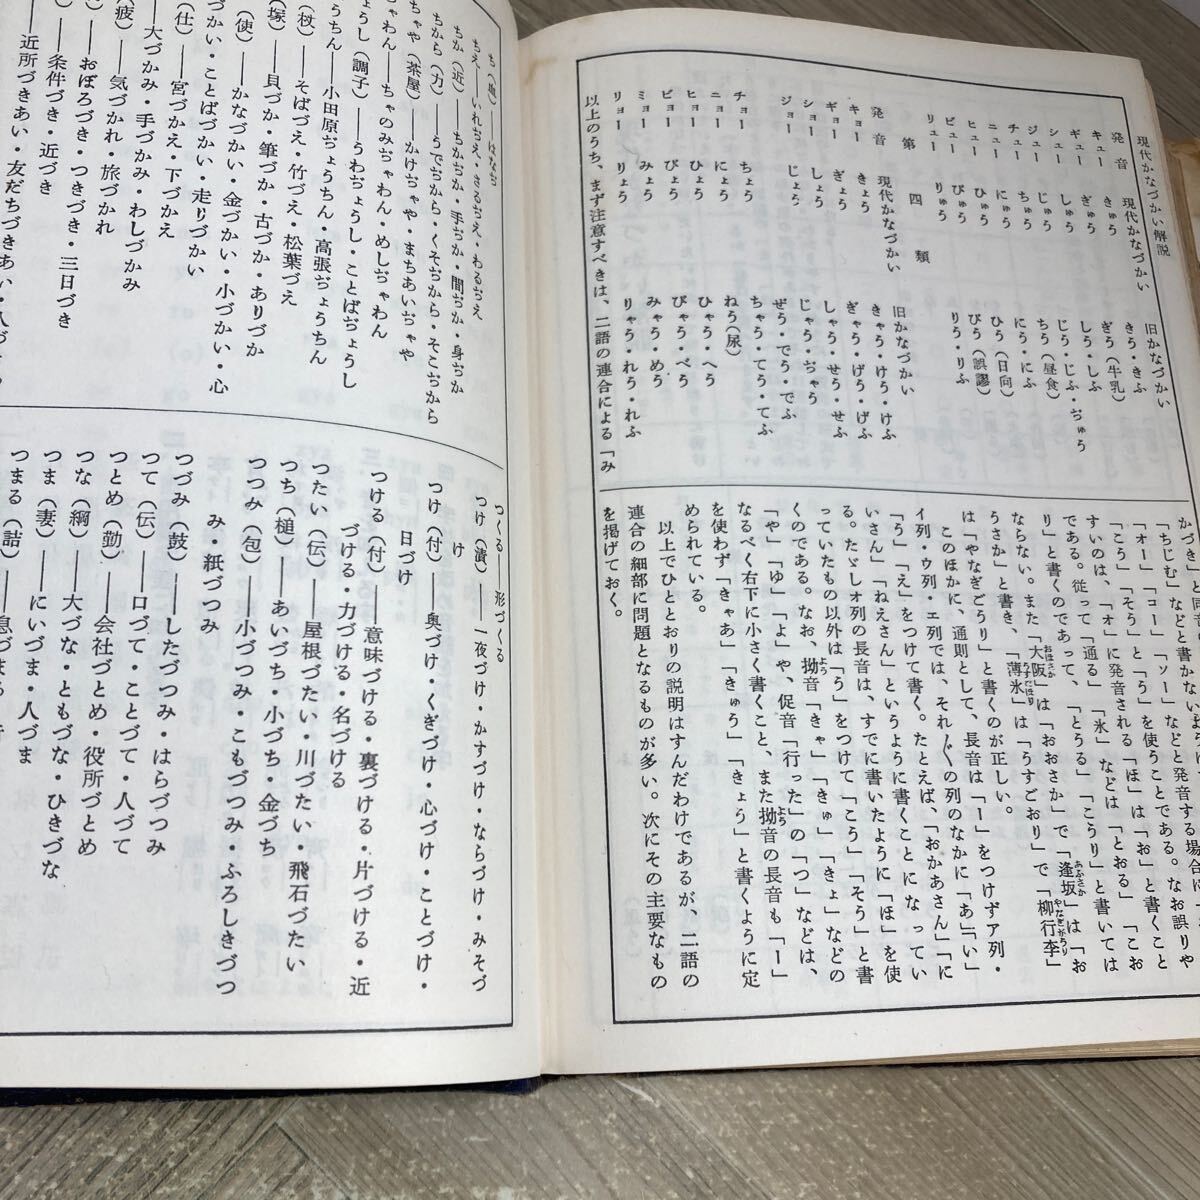 現代かなづかい解説
発音　現代かなづかい　旧かなづかい
キュー　きゅう　きう・きふ
ギュー　ぎゅう　ぎう（牛乳）
シュー　しゅう　しう・しふ
ジュー　じゅう　じう・じふ・ぢゅう
チュー　ちゅう　ちう（昼食）
ニュー　にゅう　にう・にふ
ヒュー　ひゅう　ひう（日向）
ビュー　びゅう　びう（誤謬）
リュー　りゅう　りう・りふ
第四類
発音　現代かなづかい　旧かなづかい
キョー　きょう　きゃう・けう・けふ
ギョー　ぎょう　ぎゃう・げう・げふ
ショー　しょう　しゃう・せう・せふ
ジョー　じょう　じゃう・ぢゃう
ぜう・でう・でふ
チョー　ちょう　ちゃう・てう・てふ
ニョー　にょう　ねう（尿）
ヒョー　ひょう　ひゃう・へう
ビョー　びょう　びゃう・べう
ミョー　みょう　みゃう・めう
リョー　りょう　りゃう・れう・れふ
以上のうち、まず注意すべきは、二語の連合による「み
かづき」と同
「ちじむ」などと書かないように
「オー」「コー」「ソー」などと発音する場合に
「こう」「そう」と「う」を使うことである。なお誤りや
すいのは、「オ」に発音される「ほ」は「お」と書くこと
である。従って「通る」「氷」などは「とおる」「こお
り」と書くのであって、「とうる」「こうり」と書いては
ならない。また「大阪」は「おおさか」で、「逢坂」は「お
うさか」と書き、「薄氷」は「うすごおり」で「柳行李」
は「やなぎごうり」と書くのが正しい。
このほかに、通則として、長音は「ー」をつけずア列・
イ列・ウ列・エ列では、それ〴〵の列のなかに「あ」「い」
「う」「え」をつけて書く。たとえば、「おかあさん」「に
いさん」「ねえさん」というように書くことになってい
る。たゞしオ列の長音は、すでに書いたように「ほ」を使
っていたもの以外は「う」をつけて「こう」「そう」と書
くのである。なお、拗音「きゃ」「きゅ」「きょ」などの
「や」「ゆ」「よ」や、促音「行った」の「つ」などは、
なるべく右下に小さく書くこと、また拗音の長音も「ー」
を使わず「きゃあ」「きゅう」「きょう」と書くように定
められている。
以上でひととおりの説明はすんだわけであるが、二語の
連合の細部に問題となるものが多い。次にその主要なもの
を掲げておく。
ち（血）――はなぢ
ちえ――いれぢえ・さるぢえ・わるぢえ
ちか（近）――ちかぢか・手ぢか・間ぢか・身ぢか
ちから（力）――うでぢから・くそぢから・そこぢから
ちゃや（茶屋）――かけぢゃや・まちあいぢゃや
ちゃわん――ちゃのみぢゃわん・めしぢゃわん
ちょうし（調子）――うわぢょうし・ことばぢょうし
ちょうちん――小田原ぢょうちん・高張ぢょうちん
（杖）――そばづえ・竹づえ・松葉づえ
（塚）――貝づか・筆づか・古づか・ありづか
（使）――かなづかい・金づかい・小づかい・心
づかい・ことばづかい・走りづかい
（仕）――宮づかえ・下づかえ
――大づかみ・手づかみ・わしづかみ
（疲）――気づかれ・旅づかれ
――おぼろづき・つきづき・三日づき
――条件づき・近づき
――近所づきあい・友だちづきあい・人づ
つくる――形づくる
つけ（漬）――一夜づけ・かすづけ・ならづけ・みそづ
け
つけ（付）――奥づけ・くぎづけ・心づけ・ことづけ・
日づけ
つける（付）――意味づける・裏づける・片づける・近
づける・力づける・名づける
つたい（伝）――屋根づたい・川づたい・飛石づたい
つち（槌）――あいづち・小づち・金づち
つつみ（包）――小づつみ・こもづつみ・ふろしきづつ
み・紙づつみ
つづみ（鼓）――したづつみ・はらづつみ
つて（伝）――口づて・ことづて・人づて
つとめ（勤）――会社づとめ・役所づとめ
つな（綱）――大づな・ともづな・ひきづな
つま（妻）――にいづま・人づま
つまる（詰）――息づまる・行